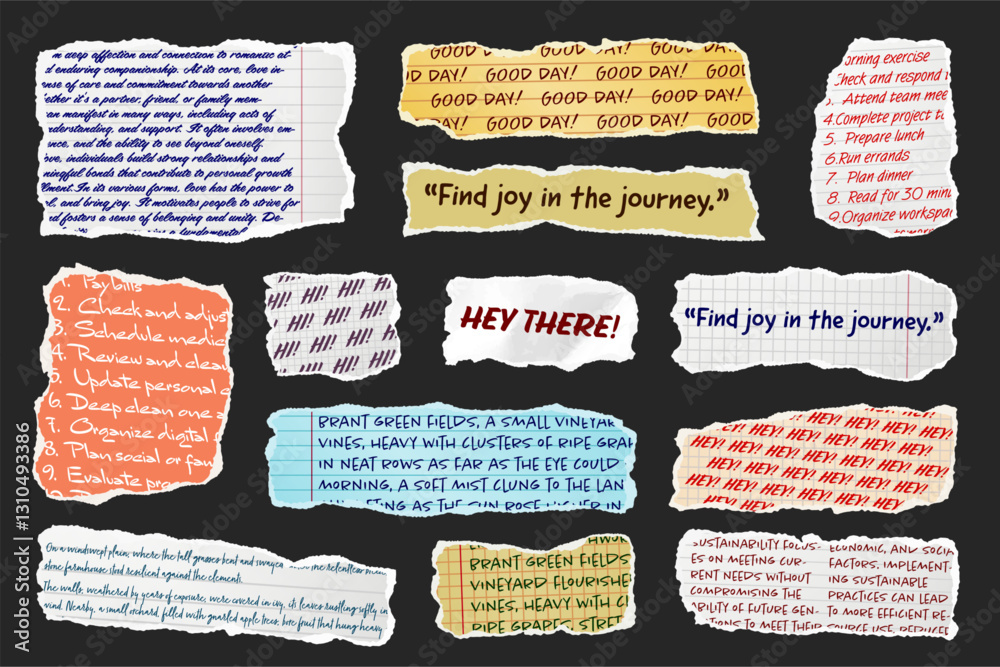 m deep affection and connection to romantic at-
d enduring companionship. At its core, love in-
nse of care and commitment towards another
ether it's a partner, friend, or family mem-
an manifest in many ways, including acts of
derstanding, and support. It often involves em-
nce, and the ability to see beyond oneself.
ove, individuals build strong relationships and
ningful bonds that contribute to personal growth
lment. In its various forms, love has the power to
l, and bring joy. It motivates people to strive for
d fosters a sense of belonging and unity. De-
fundamental
GOOD DAY! GOOD DAY!
OD DAY! GOOD DAY! GOOD DAY! GOOD
GOOD DAY! GOOD DAY! GOOD DAY!
AY! GOOD DAY! GOOD DAY! GOOD
“Find joy in the journey.”
orning exercise
Check and respond
3. Attend team mee
4.Complete project t
5. Prepare lunch
6.Run errands
7. Plan dinner
8. Read for 30 minu
9.Organize workspa
1. Pay bills
2. Check and adjust
3. Schedule medic
4. Review and clean
5. Update personal
6. Deep clean one a
7. Organize digital
8. Plan social or fam
9. Evaluate pro
HI! HI! HI!
HI! HI! HI! HI!
HI! HI! HI! HI!
HI! HI! HI! HI!
HEY THERE!
“Find joy in the journey.”
BRANT GREEN FIELDS, A SMALL VINEYAR
VINES, HEAVY WITH CLUSTERS OF RIPE GRAP
IN NEAT ROWS AS FAR AS THE EYE COULD
MORNING, A SOFT MIST CLUNG TO THE LAN
FTING AS THE SUN ROSE HIGHER IN
HEY! HEY! HEY!
HEY! HEY! HEY! HEY! HEY! HEY!
HEY! HEY! HEY! HEY! HEY! HEY!
HEY! HEY! HEY! HEY! HEY! HEY!
HEY! HEY! HEY! HEY! HEY!
On a windswept plain, where the tall grasses bent and swayed relentless
stone farmhouse stood resilient against the elements.
The walls, weathered by years of exposure, were covered in ivy, its leaves rustling softly in
wind. Nearby, a small orchard, filled with gnarled apple trees, bore fruit that hung heavy
HWOR
BRANT GREEN FIELDS
VINEYARD FLOURISHE
VINES, HEAVY WITH C
RIPE GRAPES, STRET
SUSTAINABILITY FOCUS-
ES ON MEETING CUR-
RENT NEEDS WITHOUT
COMPROMISING THE
ABILITY OF FUTURE GEN-
TIONS TO MEET THEIR
ECONOMIC, AND SOCIA
FACTORS, IMPLEMENT-
ING SUSTAINABLE
PRACTICES CAN LEAD
TO MORE EFFICIENT RE-
SOURCE USE, REDUCED
Adobe Stock | #1310493386